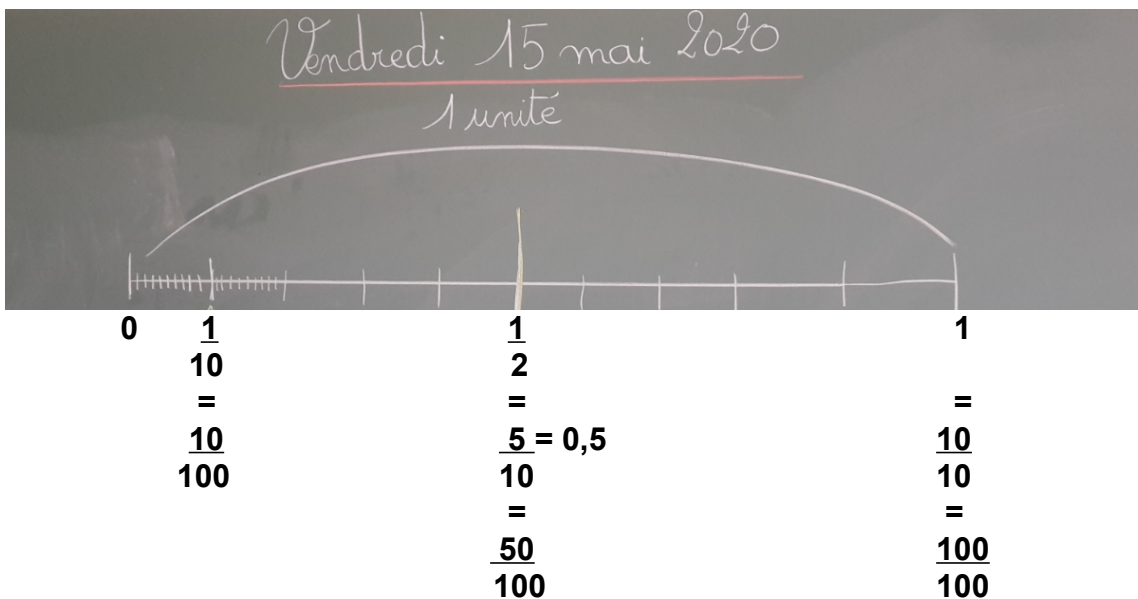 Vendredi 15 mai 2020
1 unité
0 1 1 1
10 2
= = =
10 5 = 0,5 10
100 10 10
= =
50 100
100 100